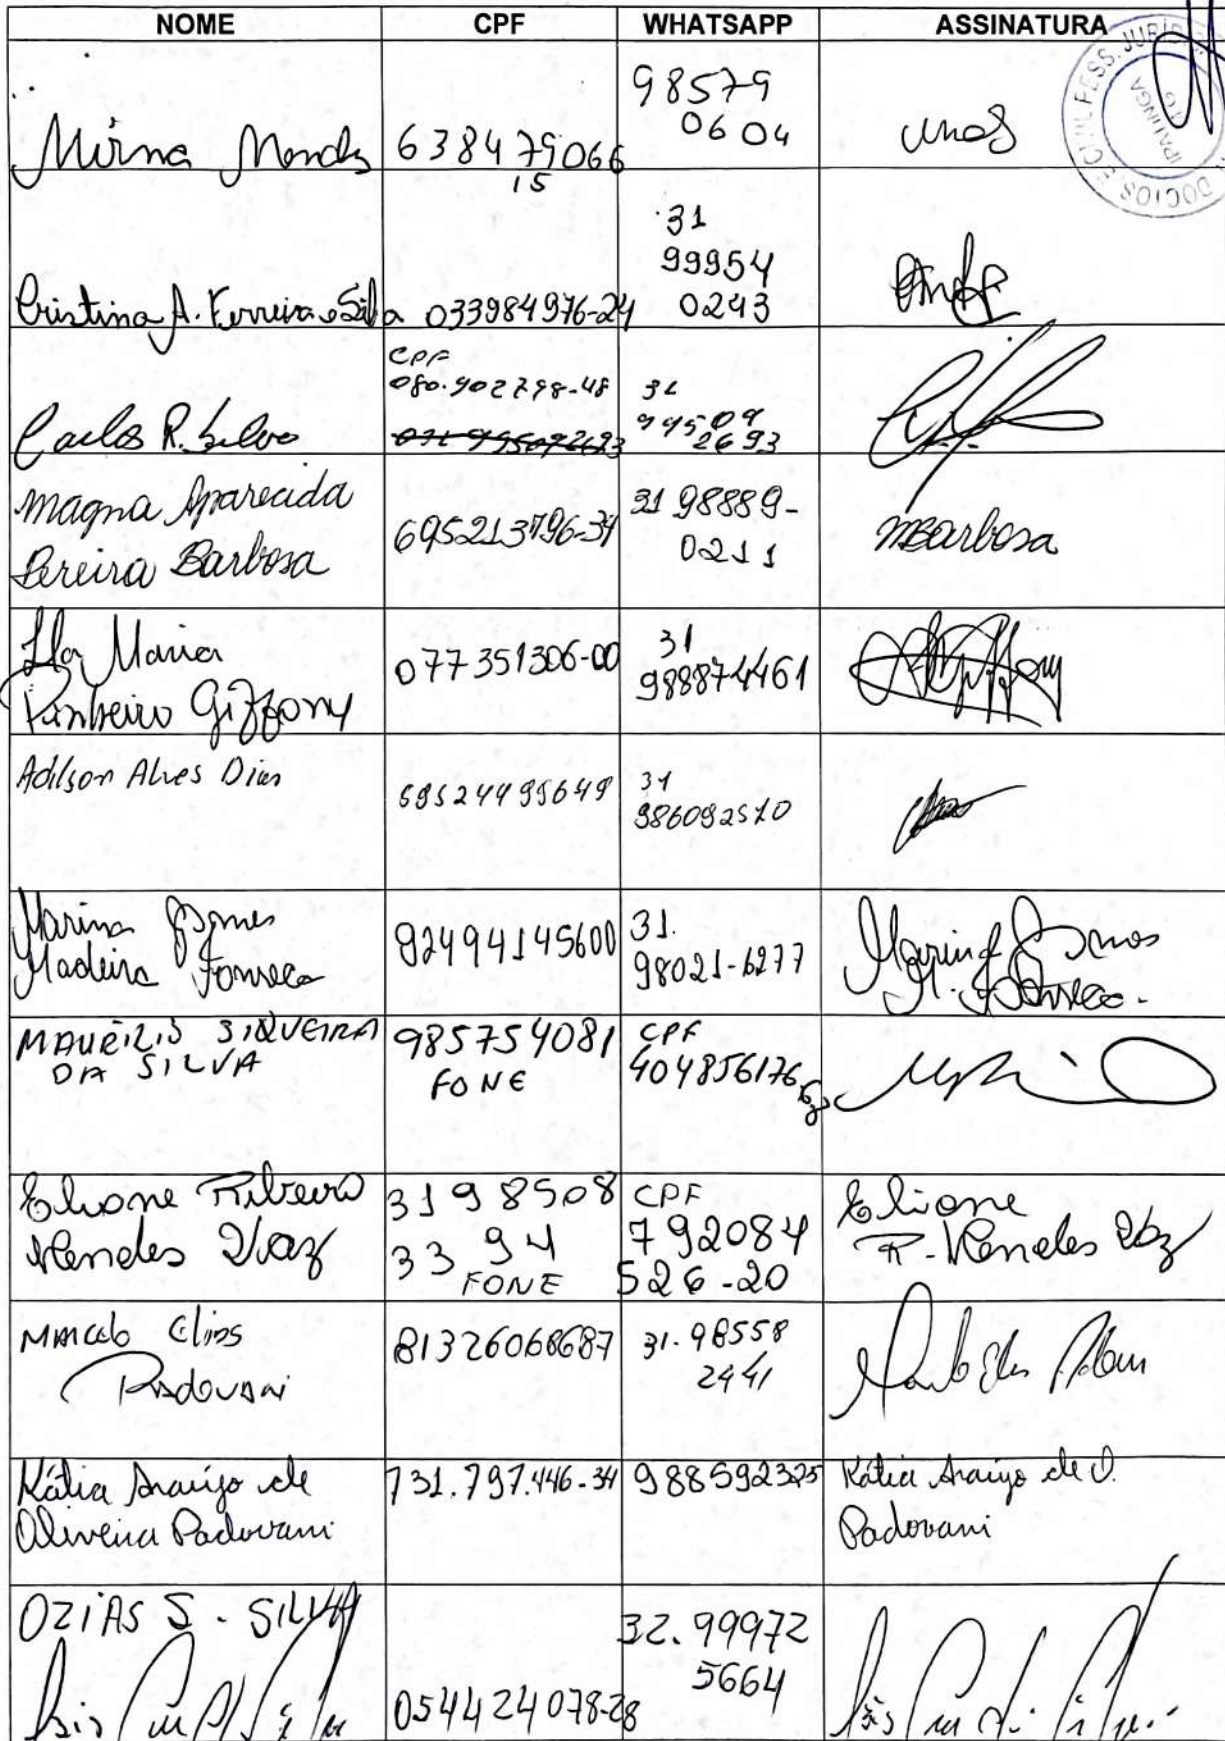 NOME CPF WHATSAPP ASSINATURA
98579
0604
Mirna Mendes 638479066
15
31
99954
0243
Cristina A. Ferreira e Silva 033984976-24
CPF
080.902798-48
31
99509
2693
Carlos R. Silva
Magna Aparecida
Pereira Barbosa
695213796-34
31 98889-
0211
MBarbosa
Ila Maria
Pinheiro Gizzony
077351306-00
31
988874461
Adilson Alves Dias
69524499649
31
986092510
Marina Gomes
Madeira Fonseca
92494145600
31.
98021-6277
Marina Gomes
M. Fonseca.
MAURÍLIO SILVEIRA
DA SILVA
985754081
FONE
CPF
404856176
Elione Ribeiro
Mendes Vaz
31 98508
33 94
FONE
CPF
792084
526-20
Elione
R. Mendes Vaz
Marcelo Elias
Padovani
81326068687
31.98558
2441
Kátia Araújo de
Oliveira Padovani
731.797.446-34
988592325
Kátia Araújo de O.
Padovani
OZIAS S. SILVA
054424078-28
32.99972
5664
IPATINGA
MG